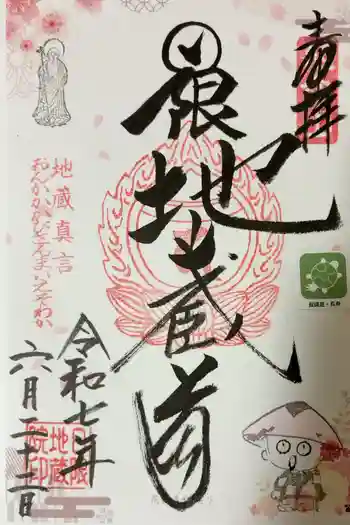 奉拝
日限地蔵尊
地蔵真言
おんかかかびさんまえいそわか
令和七年
六月二十三日
日限地蔵院印